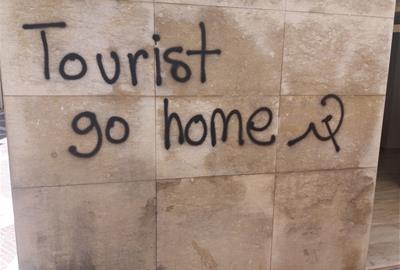 Tourist
go home